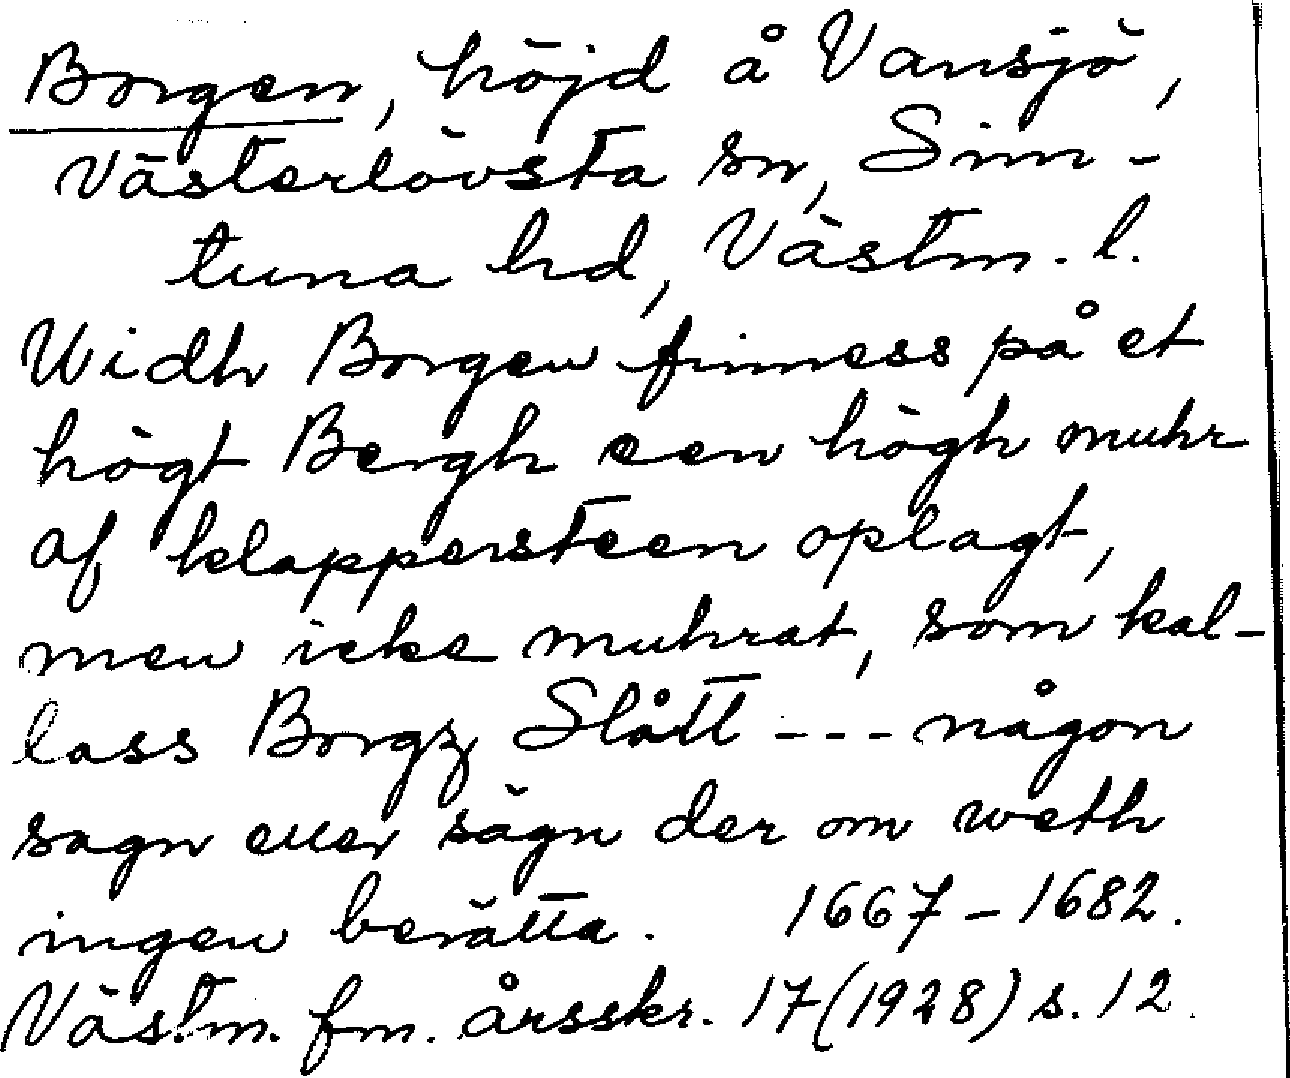 Borgen, höjd å Vansjö,
Västerlövsta sn, Sim-
tuna hd, Västm. l.
Widh Borgen finness på et
högt Bergh een högh muhr
af klappersteen oplagt,
men icke muhrat, som kal-
lass Borgz Slått --- någon
sagn eller sägn der om weth
ingen berätta. 1667-1682.
Västm. fm. årsskr. 17(1928) s. 12.